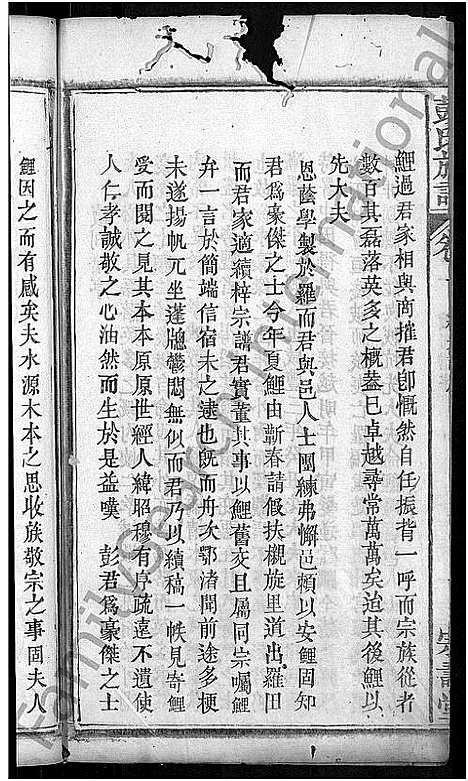 彭氏族譜
鯉過君家相與商搉君卽慨然自任振揹一呼而宗族從者
數百其磊落英多之概蓋已卓越尋常萬萬矣迨其後鯉以
先大夫
恩蔭學製於羅而君與邑人士團練弗懈邑賴以安鯉固知
君爲豪傑之士今年夏鯉由蘄春請假扶櫬旋里道出羅田
而君家適續梓宗譜君實董其事以鯉舊交且屬同宗囑鯉
弁一言於簡端信宿未之逮也旣而舟次鄂渚聞前途多梗
未遂揚帆兀坐蓬牕鬱悶無似而君乃以續稿一帙見寄鯉
受而閱之見其本本原原世經人緯昭穆有序疏遠不遺使
人仁孝誠敬之心油然而生於是益嘆 彭君爲豪傑之士
鯉因之而有感矣夫水源木本之思收族敬宗之事固夫人
FamilySearch International